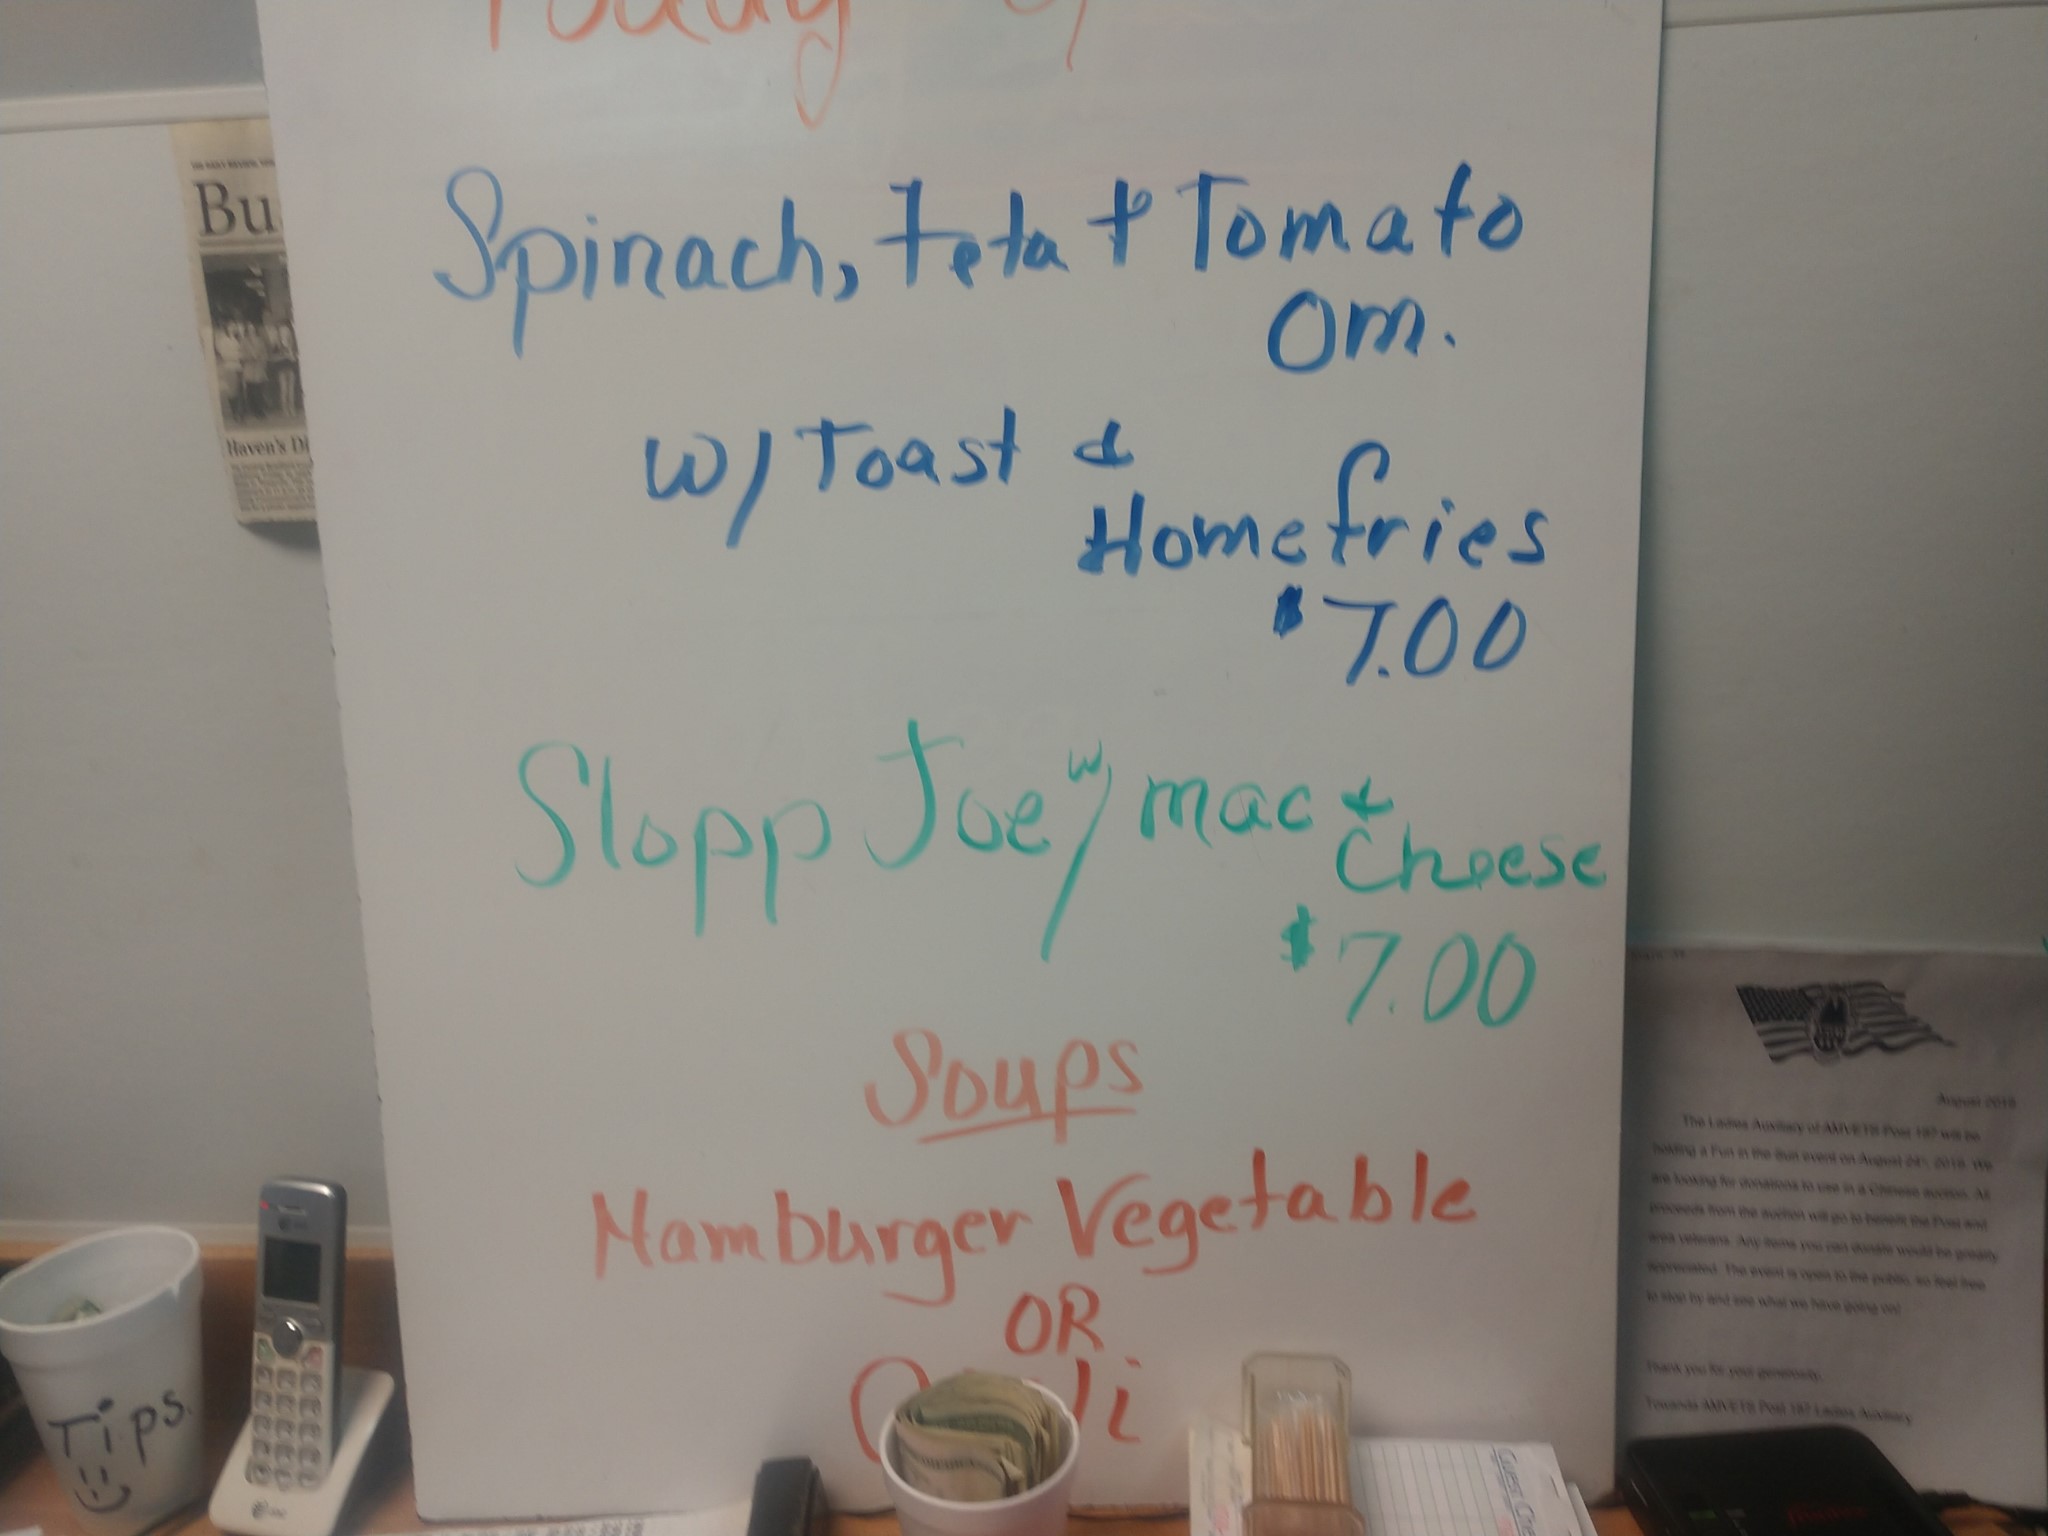 Today
Spinach, Feta & Tomato
Om.
w/ Toast &
Homefries
$7.00
Slopp Joe w/ mac &
Cheese
$7.00
Soups
Hamburger Vegetable
OR
Bu
Haven's Di
Tips
at&t
August 2019
The Ladies Auxiliary of AMVETS Post 187 will be
holding a Fun in the Sun event on August 24th, 2019. We
are looking for donations to use in a Chinese auction. All
proceeds from the auction will go to benefit the Post and
area veterans. Any items you can donate would be greatly
appreciated. The event is open to the public, so feel free
to stop by and see what we have going on!
Thank you for your generosity,
Towanda AMVETS Post 187 Ladies Auxiliary
Guest Che